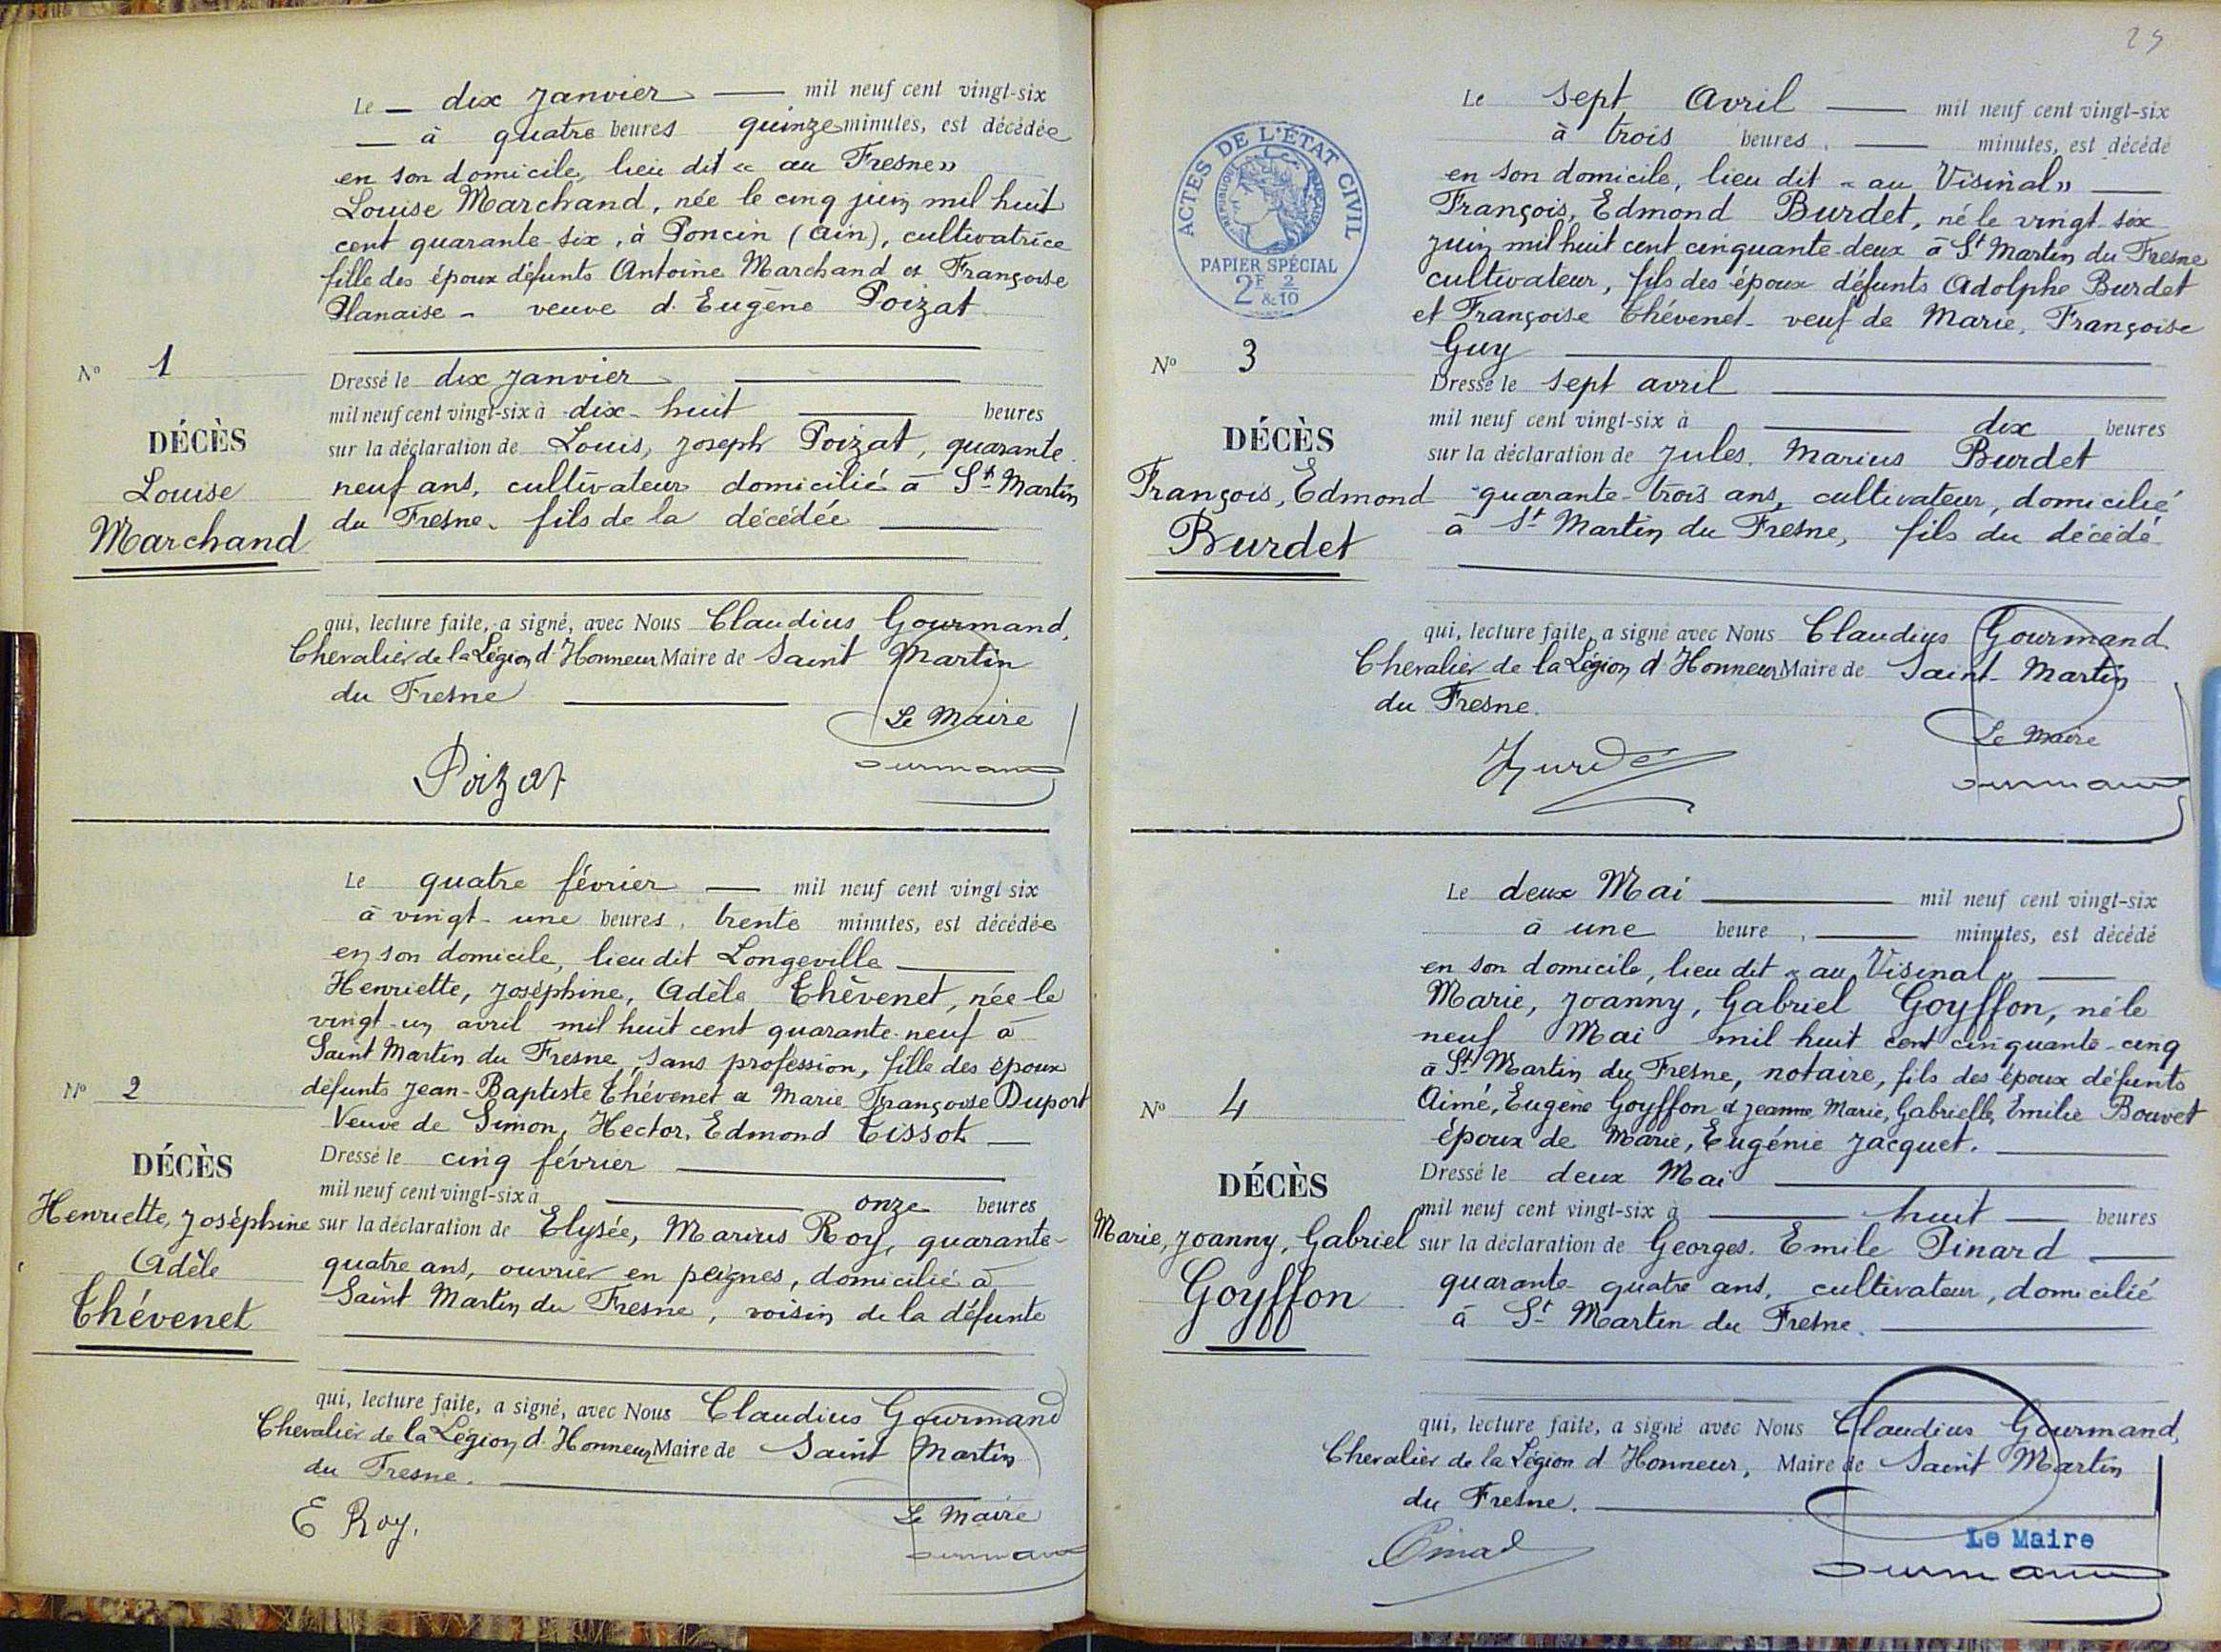 Le — dix Janvier — mil neuf cent vingt-six
— à quatre heures quinze minutes, est décédée
en son domicile, lieu dit « au Fresne »
Louise Marchand, née le cinq juin mil huit
cent quarante-six, à Poncin (Ain), cultivatrice
fille des époux défunts Antoine Marchand et Françoise
Planaise - veuve d'Eugène Poizat
N° 1
Dressé le dix Janvier
mil neuf cent vingt-six à dix-huit heures
DÉCÈS
sur la déclaration de Louis, Joseph Poizat, quarante
Louise
neuf ans, cultivateur domicilié à St Martin
Marchand
du Fresne. fils de la décédée
qui, lecture faite, a signé, avec Nous Claudius Gourmand,
Chevalier de la Légion d'Honneur Maire de Saint Martin
du Fresne
Le Maire
Poizat
Le quatre février — mil neuf cent vingt six
à vingt-une heures, trente minutes, est décédée
en son domicile, lieu dit Longeville
Henriette, Joséphine, Adèle Thévenet, née le
vingt-un avril mil huit cent quarante-neuf à
Saint Martin du Fresne, sans profession, fille des époux
défunts Jean-Baptiste Thévenet et Marie Françoise Duport
N° 2
Veuve de Simon, Hector, Edmond Tissot
Dressé le cinq février
DÉCÈS
mil neuf cent vingt-six à onze heures
Henriette, Joséphine
sur la déclaration de Elysée, Marius Roy, quarante-
Adèle
quatre ans, ouvrier en peignes, domicilié à
Thévenet
Saint Martin du Fresne, voisin de la défunte
qui, lecture faite, a signé, avec Nous Claudius Gourmand
Chevalier de la Légion d'Honneur Maire de Saint Martin
du Fresne.
Le Maire
E Roy.
Le sept Avril — mil neuf cent vingt-six
à trois heures, — minutes, est décédé
en son domicile, lieu dit « au Visinal »
François, Edmond Burdet, né le vingt-six
juin mil huit cent cinquante-deux à St Martin du Fresne
cultivateur, fils des époux défunts Adolphe Burdet
et Françoise Thévenet - veuf de Marie, Françoise
Guy
ACTES DE L'ÉTAT CIVIL
RÉPUBLIQUE FRANÇAISE
PAPIER SPÉCIAL
2F & 2/10
N° 3
Dressé le sept avril
mil neuf cent vingt-six à dix heures
DÉCÈS
sur la déclaration de Jules, Marius Burdet
François, Edmond
quarante-trois ans, cultivateur, domicilié
Burdet
à St Martin du Fresne, fils du décédé
qui, lecture faite, a signé avec Nous Claudius Gourmand
Chevalier de la Légion d'Honneur Maire de Saint-Martin
du Fresne.
Le Maire
Le deux Mai — mil neuf cent vingt-six
à une heure, — minutes, est décédé
en son domicile, lieu dit « au Visinal »
Marie, Joanny, Gabriel Goyffon, né le
neuf Mai mil huit cent cinquante-cinq
à St Martin du Fresne, notaire, fils des époux défunts
Aimé, Eugène Goyffon et Jeanne, Marie, Gabrielle, Emilie Bouvet
N° 4
époux de Marie, Eugénie Jacquet.
Dressé le deux Mai
DÉCÈS
mil neuf cent vingt-six à — huit — heures
Marie, Joanny, Gabriel
sur la déclaration de Georges, Emile Pinard
Goyffon
quarante-quatre ans, cultivateur, domicilié
à St Martin du Fresne.
qui, lecture faite, a signé avec Nous Claudius Gourmand,
Chevalier de la Légion d'Honneur, Maire de Saint Martin
du Fresne.
Le Maire